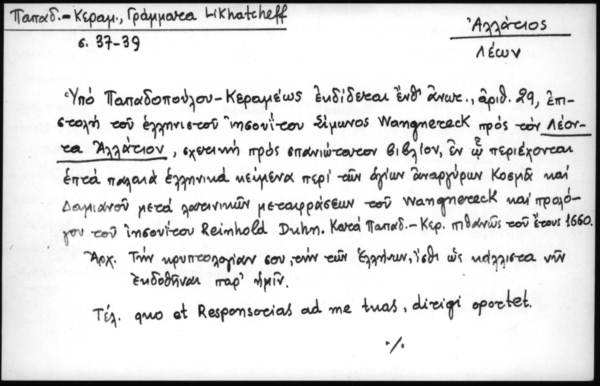 Παπαδ.-Κεραμ., Γράμματα Likhatcheff
σ. 37-39
Ἀλλάτιος
Λέων
Ὑπό Παπαδοπούλου-Κεραμέως ἐκδίδεται ἔνθ' ἀνωτ., ἀριθ. 29, ἐπι-
στολή τοῦ ἑλληνιστοῦ ἰησουΐτου Σίμωνος Wangnereck πρός τόν Λέον-
τα Ἀλλάτιον, σχετική πρός σπανιώτατον βιβλίον, ἐν ᾧ περιέχονται
ἑπτά παλαιά ἑλληνικά κείμενα περί τῶν ἁγίων ἀναργύρων Κοσμᾶ καί
Δαμιανοῦ μετά λατινικῶν μεταφράσεων τοῦ Wangnereck καί προλό-
γου τοῦ ἰησουίτου Reinhold Duhn. Κατά Παπαδ.-Κερ. πιθανῶς τοῦ ἔτους 1660.
Ἀρχ. Τήν κρυπτολογίαν σου, τήν τῶν Ἑλλήνων, ἴσθι ὡς κάλλιστα νῦν
ἐκδοθῆναι παρ' ἡμῖν.
Τέλ. quo et Responsorias ad me tuas, dirigi oportet.
./.